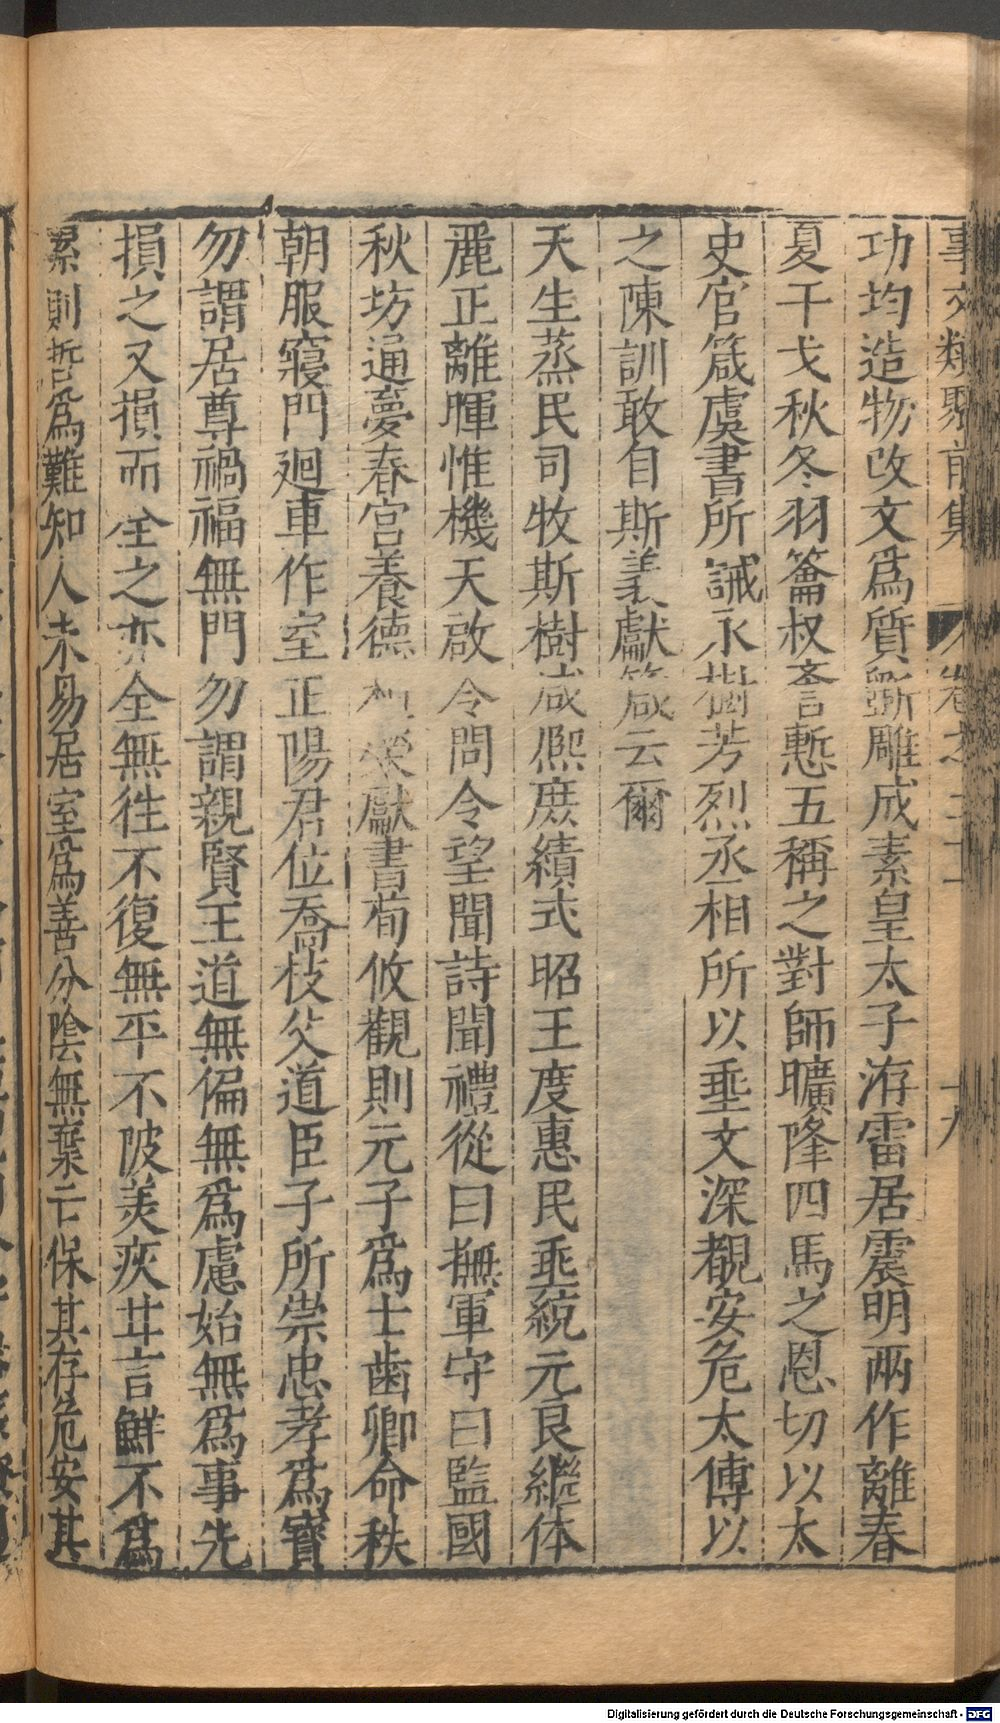 事文類聚前集 卷之二十一 十九
功均造物改文爲質斵雕成素皇太子洊雷居震明兩作離春
夏干戈秋冬羽籥叔訔慙五稱之對師曠隆四馬之恩切以太
史官箴虞書所誡永樹芳烈丞相所以垂文深覩安危太傅以
之陳訓敢自斯義獻箴云爾
天生蒸民司牧斯樹咸熈庶績式昭王度惠民垂統元良繼体
麗正離暉惟機天啟令問令望聞詩聞禮從曰撫軍守曰監國
秋坊通夢春宮養德桓榮獻書荀攸觀則元子爲士齒卿命秩
朝服寢門廻車作室正陽君位喬枝父道臣子所崇忠孝爲寶
勿謂居尊禍福無門勿謂親賢王道無偏無爲慮始無爲事先
損之又損而全之亦全無徃不復無平不陂羙疢苷言鮮不爲
累則哲爲難知人未易居室爲善分陰無棄亡保其存危安其
Digitalisierung gefördert durch die Deutsche Forschungsgemeinschaft - DFG